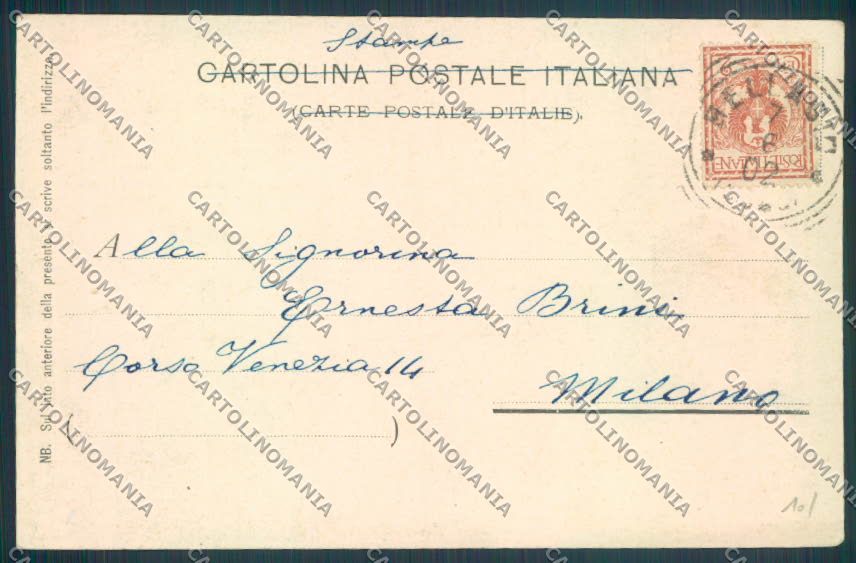 Stampe
CARTOLINA POSTALE ITALIANA
(CARTE POSTALE D'ITALIE).
POSTE ITALIANE
7
8
02
Alla Signorina
Ernesta Brini
Corso Venezia 14
Milano
( )
NB. Sul lato anteriore della presente si scrive soltanto l'indirizzo.
CARTOLINOMANIA